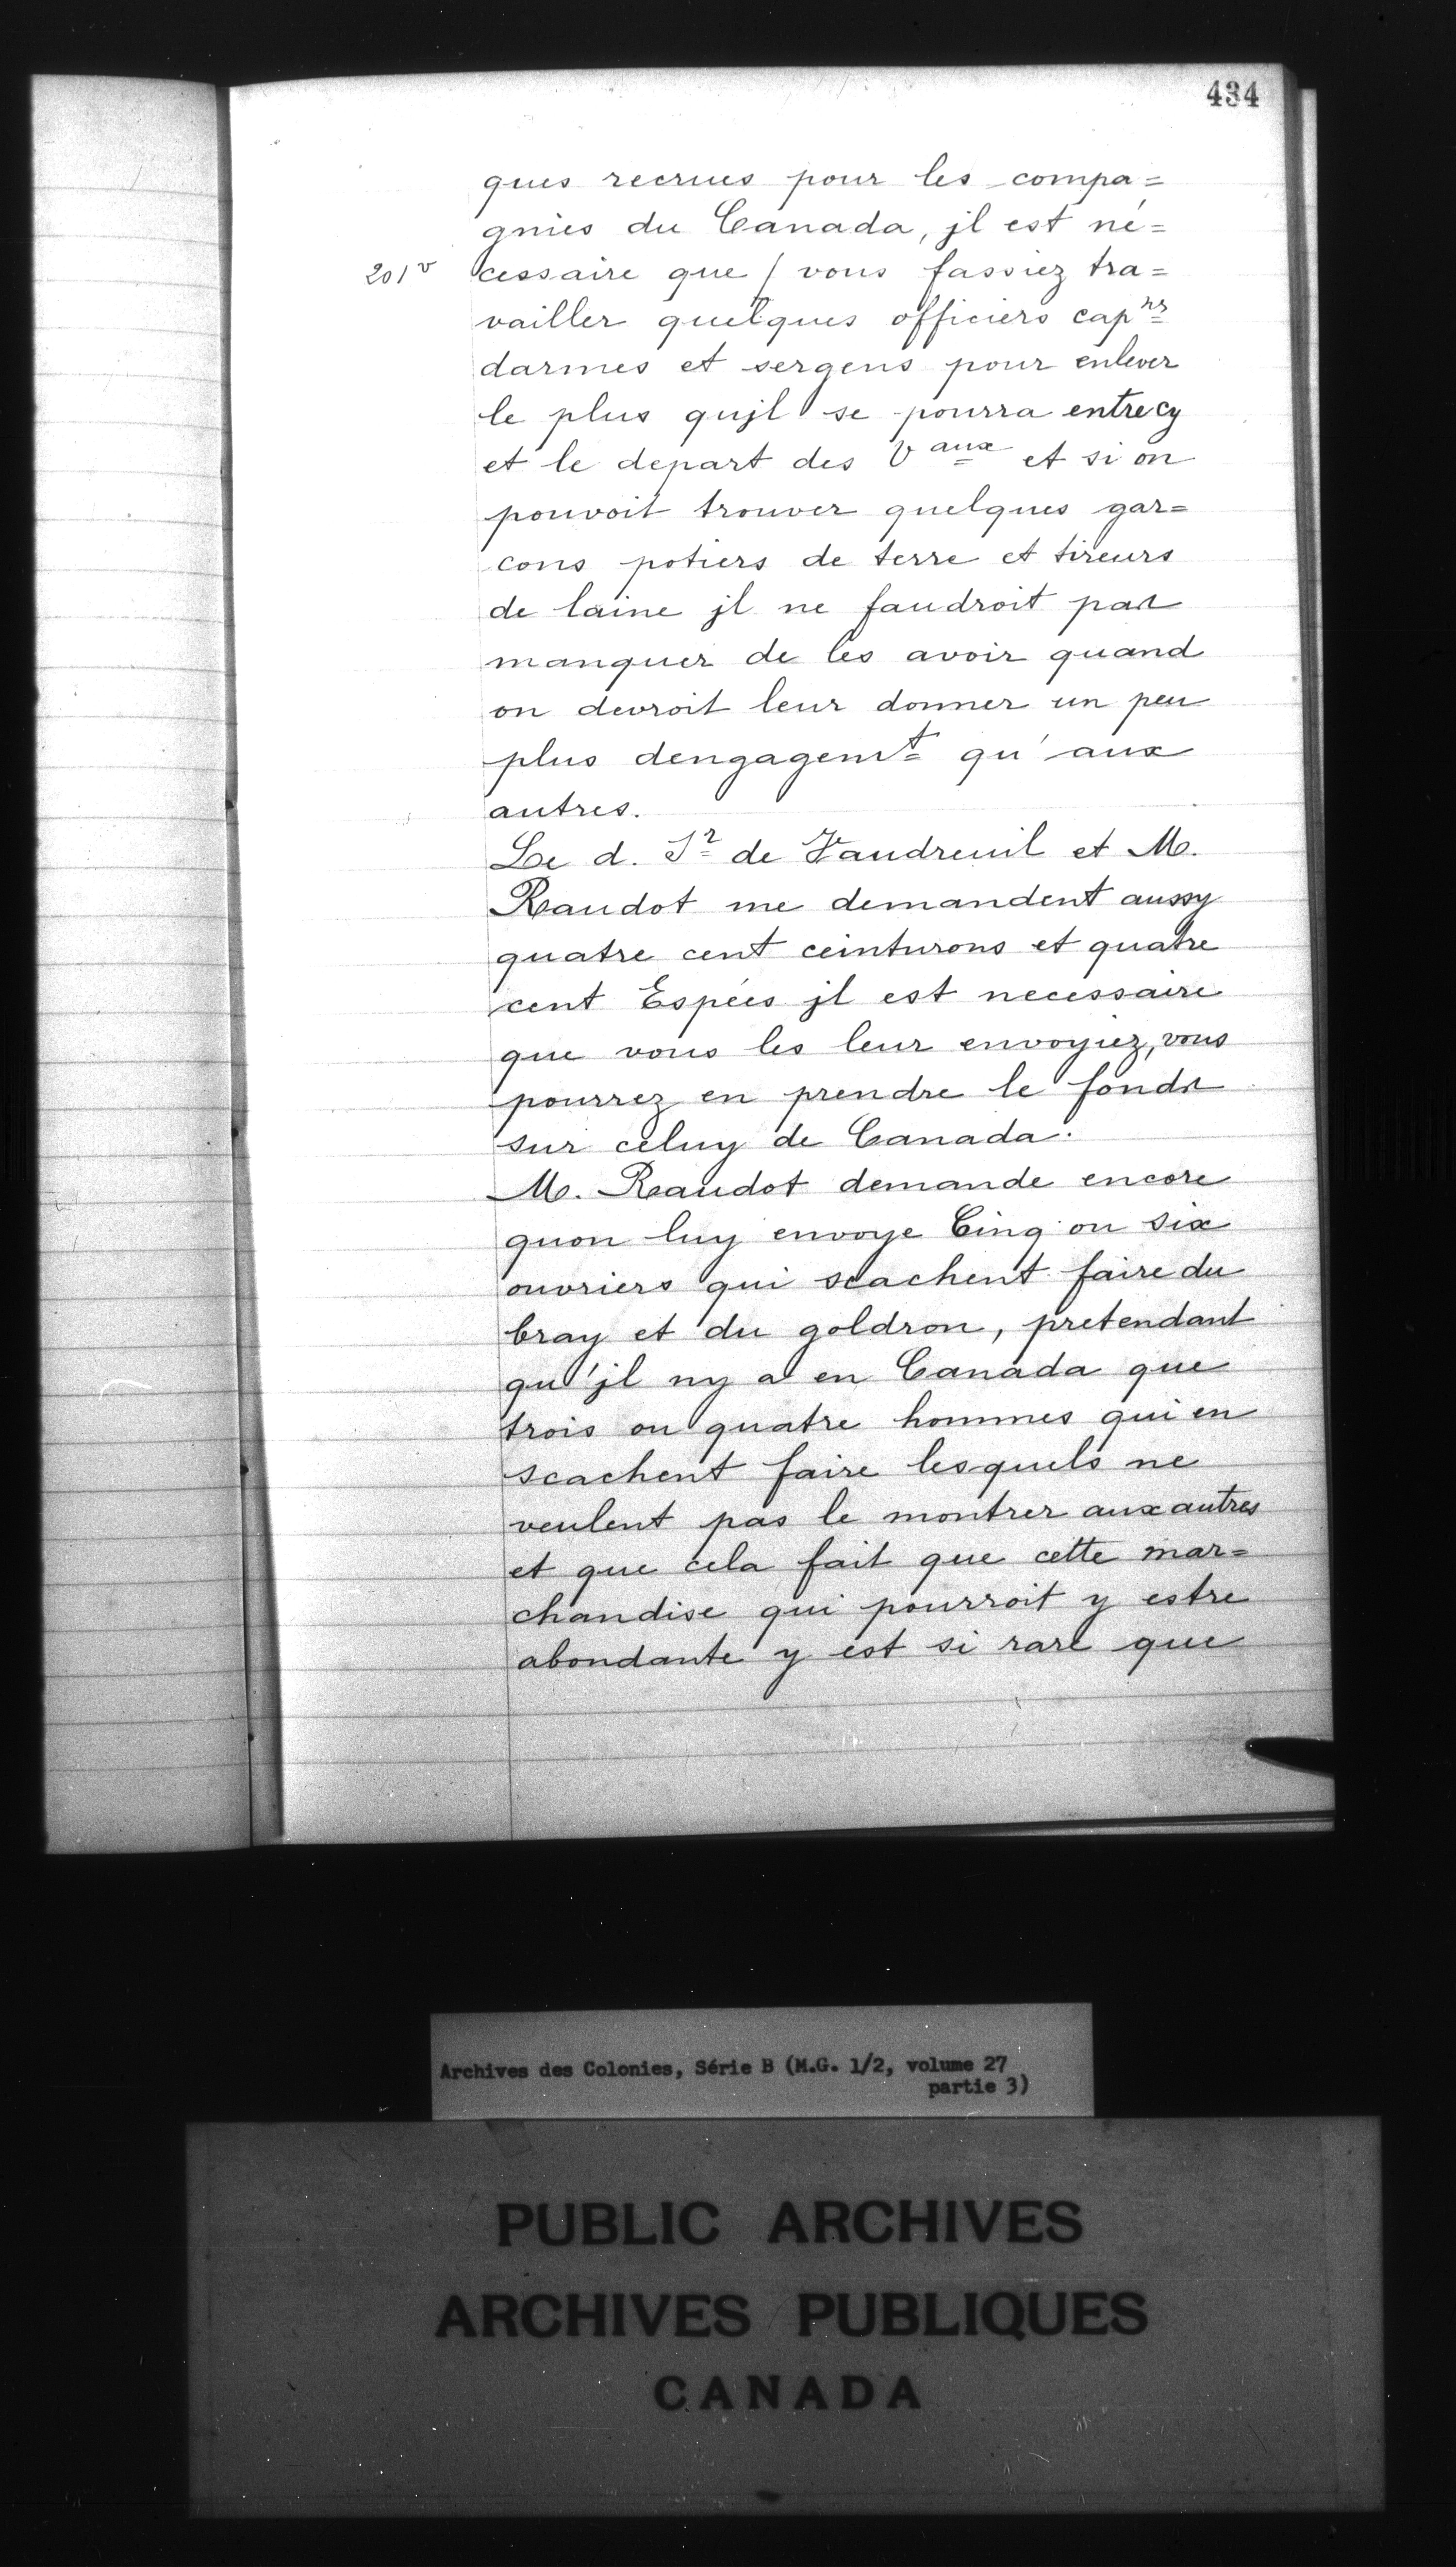 434
ques recrues pour les compa=
gnies du Canada, jl est né=
201v cessaire que / vous fassiez tra=
vailler quelques officiers capnes
darmes et sergens pour enlever
le plus qujl se pourra entrecy
et le depart des Vaux et si on
pouvoit trouver quelques gar=
cons potiers de terre et tireurs
de laine jl ne faudroit pas
manquer de les avoir quand
on devroit leur donner un peu
plus dengagemt qu'aux
autres.
Le d. Sr de Vaudreuil et M.
Raudot me demandent aussy
quatre cent ceinturons et quatre
cent Espées jl est necessaire
que vous les leur envoyiez, vous
pourrez en prendre le fonds
sur celuy de Canada.
M. Raudot demande encore
quon luy envoye Cinq ou six
ouvriers qui scachent faire du
bray et du goldron, pretendant
qu'jl ny a en Canada que
trois ou quatre hommes qui en
scachent faire lesquels ne
veulent pas le montrer aux autres
et que cela fait que cette mar=
chandise qui pourroit y estre
abondante y est si rare que
Archives des Colonies, Série B (M.G. 1/2, volume 27
partie 3)
PUBLIC ARCHIVES
ARCHIVES PUBLIQUES
CANADA